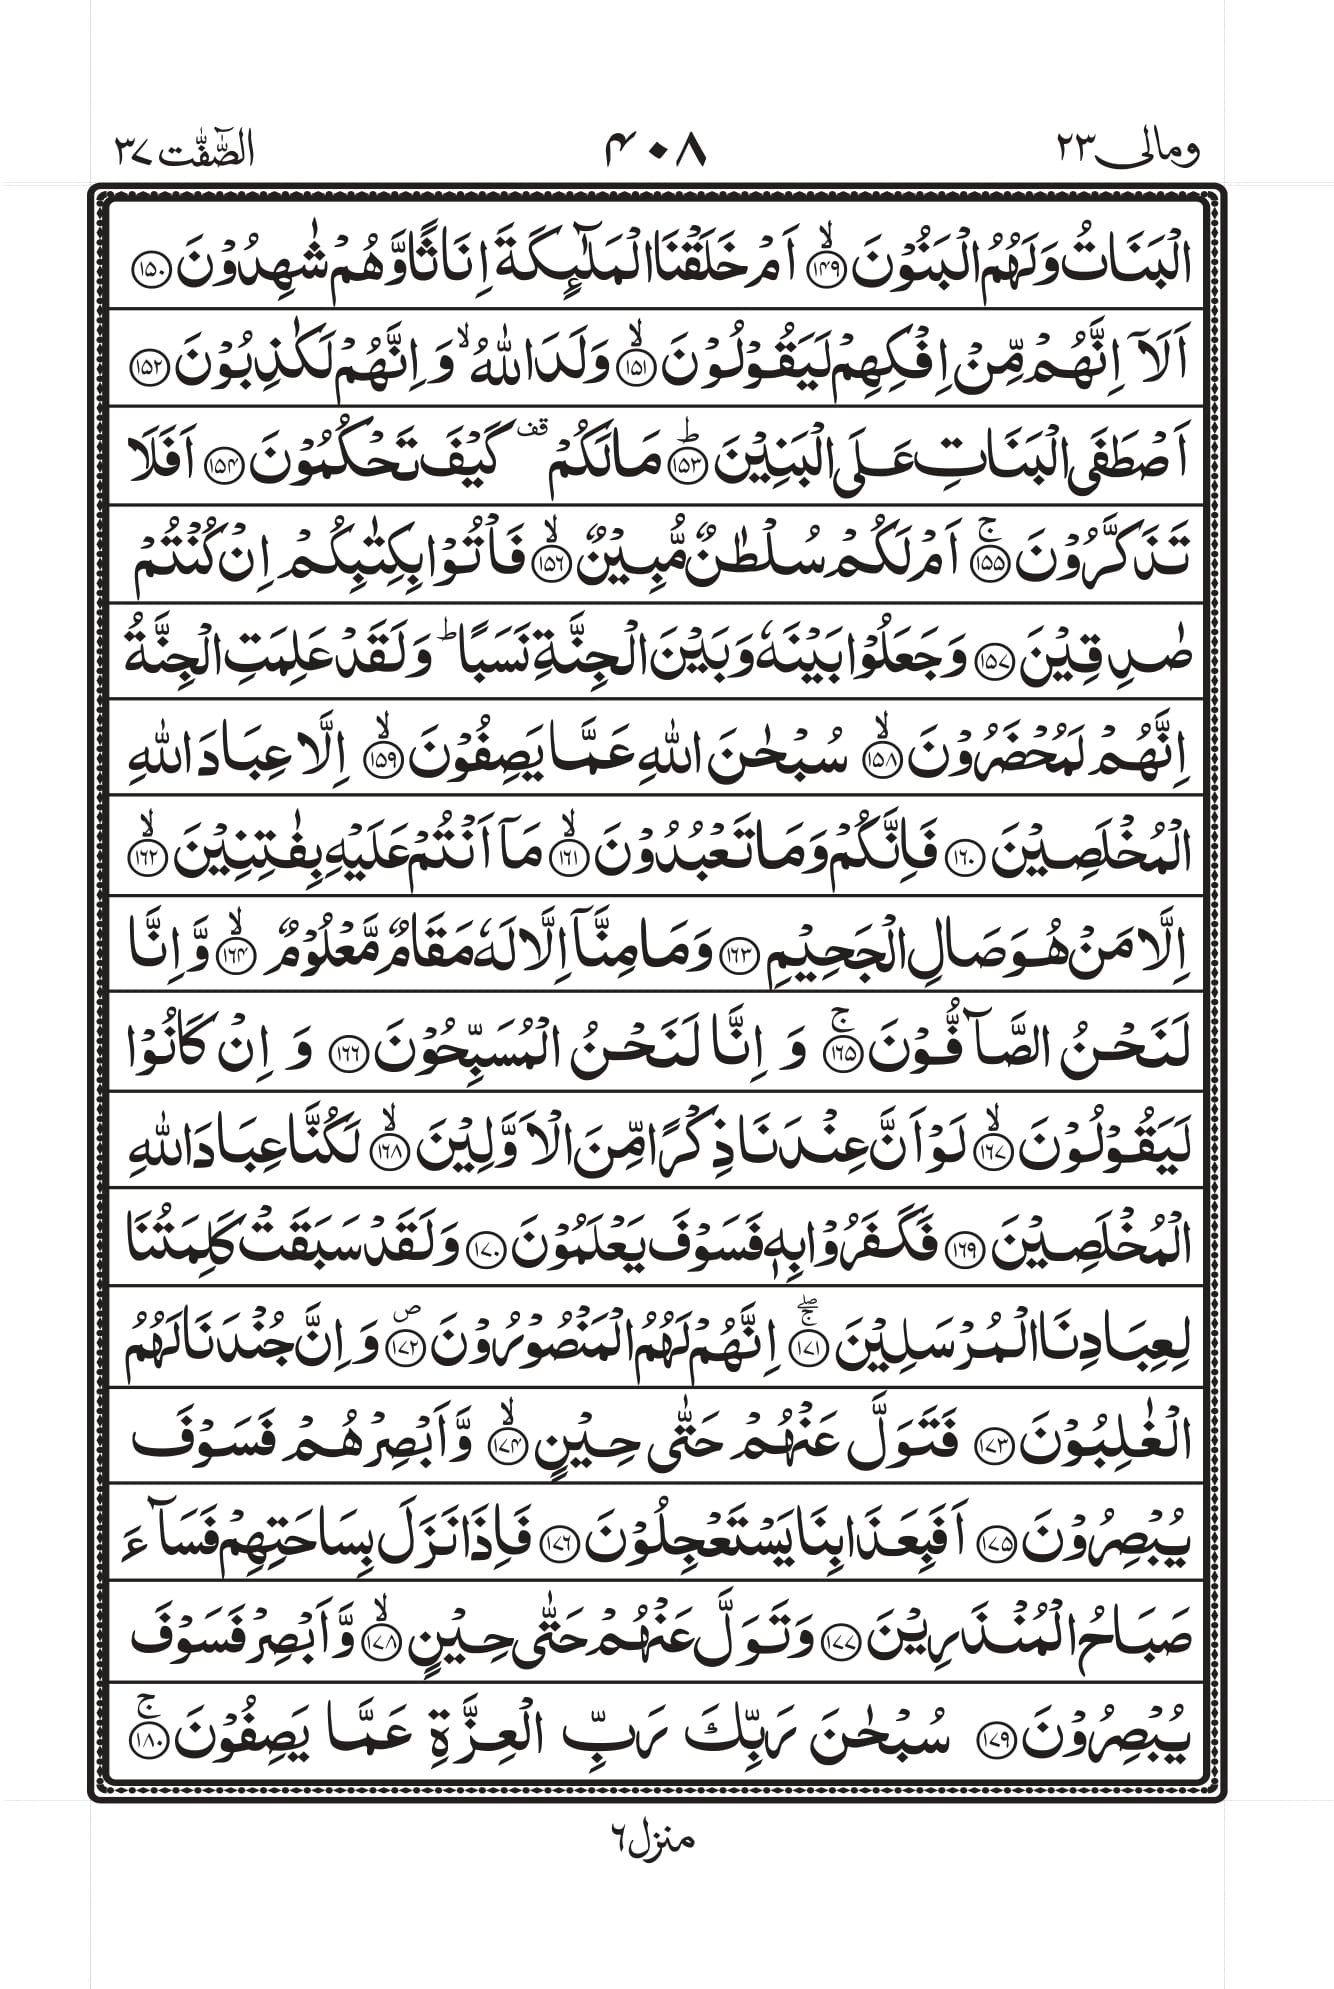 ومالی ٢٣
٤٠٨
الصّٰٓفّٰت ٣٧
الْبَنَاتُ وَلَهُمُ الْبَنُوْنَ ۙ‏﴿۱۴۹﴾ اَمْ خَلَقْنَا الْمَلٰٓئِكَةَ اِنَاثًا وَّهُمْ شٰهِدُوْنَ ﴿۱۵۰﴾
اَلَاۤ اِنَّهُمْ مِّنْ اِفْكِهِمْ لَيَقُوْلُوْنَ ۙ‏﴿۱۵۱﴾ وَلَدَ اللّٰهُ ۙ وَاِنَّهُمْ لَكٰذِبُوْنَ ﴿۱۵۲﴾
اَصْطَفَى الْبَنَاتِ عَلَى الْبَنِيْنَ ؕ‏﴿۱۵۳﴾ مَا لَكُمْ قف كَيْفَ تَحْكُمُوْنَ ﴿۱۵۴﴾ اَفَلَا
تَذَكَّرُوْنَ ۚ‏﴿۱۵۵﴾ اَمْ لَكُمْ سُلْطٰنٌ مُّبِيْنٌ ۙ‏﴿۱۵۶﴾ فَاْتُوْا بِكِتٰبِكُمْ اِنْ كُنْتُمْ
صٰدِقِيْنَ ﴿۱۵۷﴾ وَجَعَلُوْا بَيْنَهٗ وَبَيْنَ الْجِنَّةِ نَسَبًا ؕ وَلَقَدْ عَلِمَتِ الْجِنَّةُ
اِنَّهُمْ لَمُحْضَرُوْنَ ۙ‏﴿۱۵۸﴾ سُبْحٰنَ اللّٰهِ عَمَّا يَصِفُوْنَ ۙ‏﴿۱۵۹﴾ اِلَّا عِبَادَ اللّٰهِ
الْمُخْلَصِيْنَ ﴿۱۶۰﴾ فَاِنَّكُمْ وَمَا تَعْبُدُوْنَ ۙ‏﴿۱۶۱﴾ مَاۤ اَنْتُمْ عَلَيْهِ بِفٰتِنِيْنَ ۙ‏﴿۱۶۲﴾
اِلَّا مَنْ هُوَ صَالِ الْجَحِيْمِ ﴿۱۶۳﴾ وَمَا مِنَّاۤ اِلَّا لَهٗ مَقَامٌ مَّعْلُوْمٌ ۙ‏﴿۱۶۴﴾ وَّاِنَّا
لَنَحْنُ الصَّآفُّوْنَ ۚ‏﴿۱۶۵﴾ وَاِنَّا لَنَحْنُ الْمُسَبِّحُوْنَ ﴿۱۶۶﴾ وَاِنْ كَانُوْا
لَيَقُوْلُوْنَ ۙ‏﴿۱۶۷﴾ لَوْ اَنَّ عِنْدَنَا ذِكْرًا مِّنَ الْاَوَّلِيْنَ ۙ‏﴿۱۶۸﴾ لَكُنَّا عِبَادَ اللّٰهِ
الْمُخْلَصِيْنَ ﴿۱۶۹﴾ فَكَفَرُوْا بِهٖ فَسَوْفَ يَعْلَمُوْنَ ﴿۱۷۰﴾ وَلَقَدْ سَبَقَتْ كَلِمَتُنَا
لِعِبَادِنَا الْمُرْسَلِيْنَ ۖۚ‏﴿۱۷۱﴾ اِنَّهُمْ لَهُمُ الْمَنْصُوْرُوْنَ ص ﴿۱۷۲﴾ وَاِنَّ جُنْدَنَا لَهُمُ
الْغٰلِبُوْنَ ﴿۱۷۳﴾ فَتَوَلَّ عَنْهُمْ حَتّٰى حِيْنٍ ۙ‏﴿۱۷۴﴾ وَّاَبْصِرْهُمْ فَسَوْفَ
يُبْصِرُوْنَ ﴿۱۷۵﴾ اَفَبِعَذَابِنَا يَسْتَعْجِلُوْنَ ﴿۱۷۶﴾ فَاِذَا نَزَلَ بِسَاحَتِهِمْ فَسَآءَ
صَبَاحُ الْمُنْذَرِيْنَ ﴿۱۷۷﴾ وَتَوَلَّ عَنْهُمْ حَتّٰى حِيْنٍ ۙ‏﴿۱۷۸﴾ وَّاَبْصِرْ فَسَوْفَ
يُبْصِرُوْنَ ﴿۱۷۹﴾ سُبْحٰنَ رَبِّكَ رَبِّ الْعِزَّةِ عَمَّا يَصِفُوْنَ ۚ‏﴿۱۸۰﴾
منزل ٦